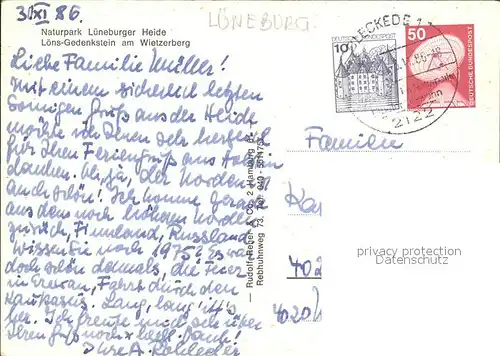 3. XI 86.
LÜNEBURG
Naturpark Lüneburger Heide
Löns-Gedenkstein am Wietzerberg
10
DEUTSCHE BUNDESPOST
50
DEUTSCHE BUNDESPOST
BLECKEDE 1
2122
Liebe Familie Müller!
Mit einem sicherlich letzten
sonnigen Gruß aus der Heide
möchte ich Ihnen sehr herzlich
für Ihren Feriengruß aus
danken. Oh, ja, der Norden ist
auch schön! Ich komme gerade
aus dem noch höheren Norden
zurück, Finnland, Russland.
Wissen Sie noch 1975? Es war
doch schön damals, die Feier
in Erevan, Fahrt durch den
Kaukasus. Lang, lang ist's
her. Ich freute mich sehr über
Ihren Gruß noch x heißt. Dank!
Ihre A.
Familien
Ka
402
4020
— Rudolf Reher & Co., 2 Hamburg 67 —
Rebhuhnweg 73, Tel. 040-
privacy protection
Datenschutz